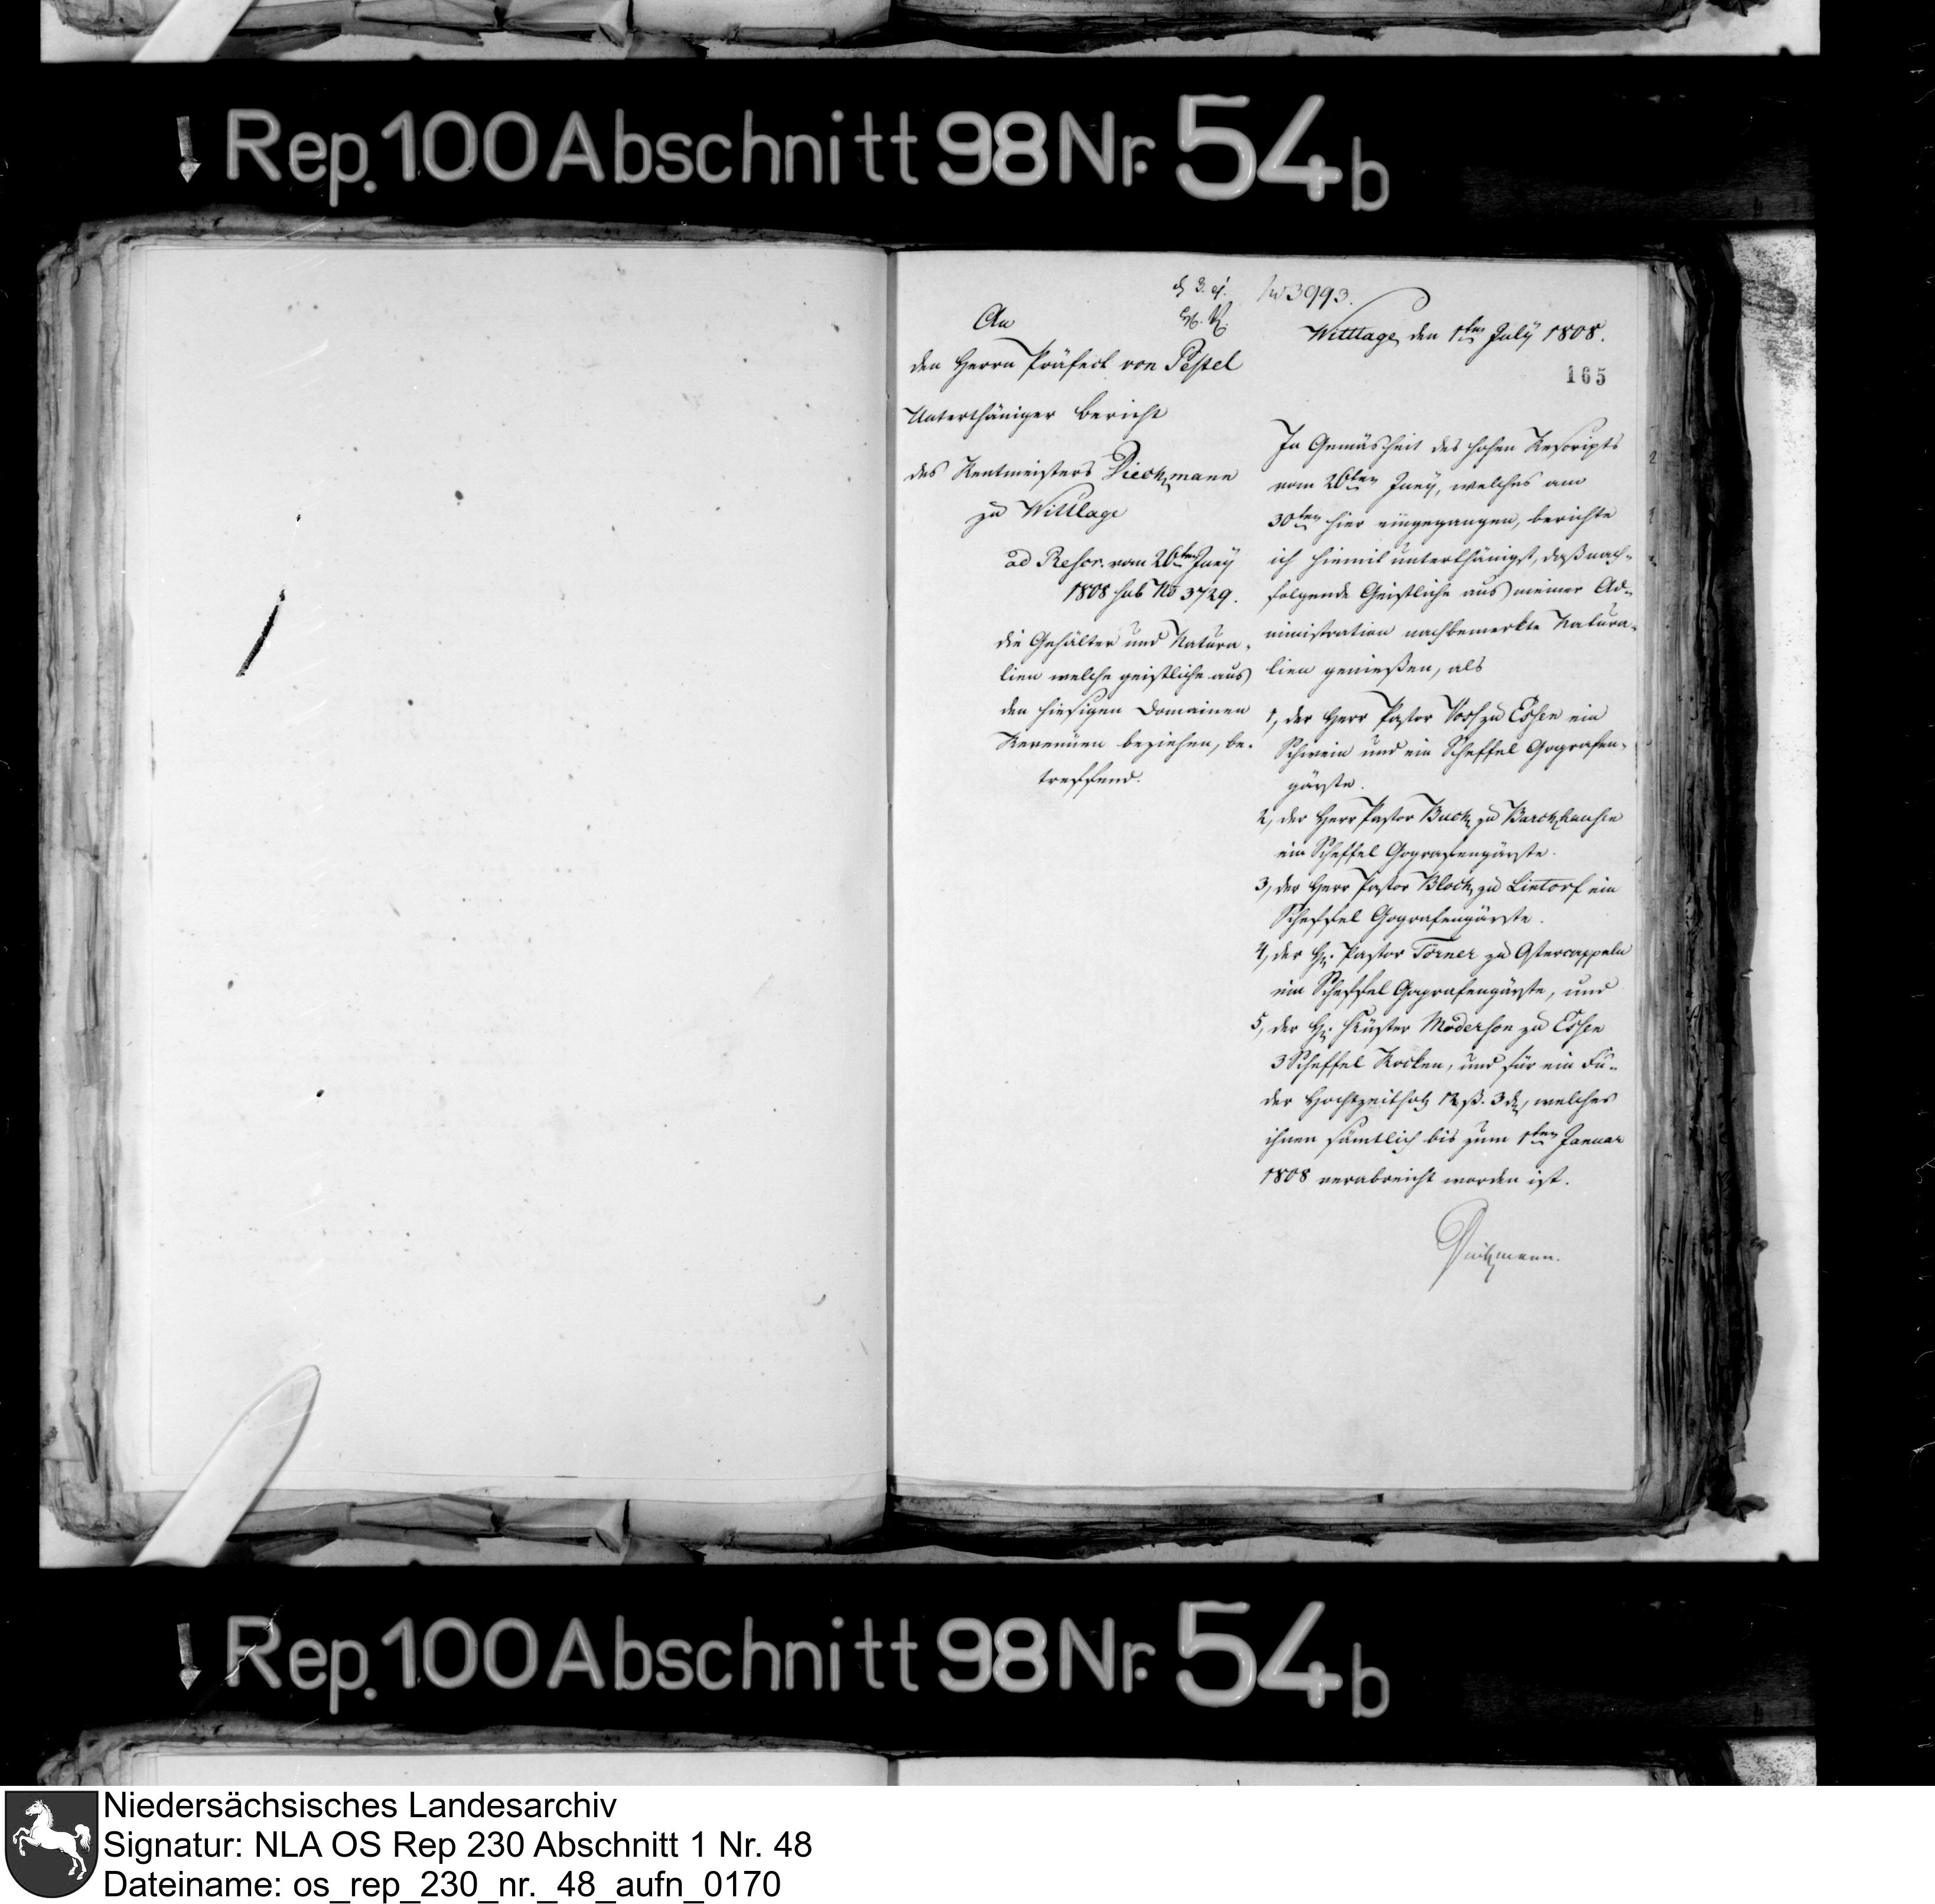 Rep. 100 Abschnitt 98 Nr. 54 b
No 3993.
An
den Herrn Präfect von Pestel
Unterthäniger Bericht
des Rentmeisters Dieckmann
zu Wittlage
ad Rescr. vom 26ten Juny
1808 sub No 3729.
die Gehälter und Natura-
lien welche geistliche aus
den hiesigen Domainen
Revenüen beziehen, be-
treffend.
Wittlage, den 1ten July 1808.
165
In Gemäsheit des hohen Rescripts
vom 26ten Juny, welches am
30ten hier eingegangen, berichte
ich hiemit unterthänigst, daß nach-
folgende Geistliche aus meiner Ad-
ministration nachbemerkte Natura-
lien genießen, als
1, der Herr Pastor Voss zu Essen ein
Schwein und ein Scheffel Gografen-
gärste.
2, der Herr Pastor Buck zu Barckhausen
ein Scheffel Gografengärste.
3, der Herr Pastor Block zu Lintorf ein
Scheffel Gografengärste.
4, der Hr. Pastor Törner zu Ostercappeln
ein Scheffel Gografengärste, und
5, der Hr. Küster Moderson zu Essen
3 Scheffel Rocken, und für ein Fu-
der Hochzeitholz 12 ß. 3 d, welches
ihnen sämtlich bis zum 1ten Januar
1808 verabreicht worden ist.
Dieckmann.
Rep. 100 Abschnitt 98 Nr. 54 b
Niedersächsisches Landesarchiv
Signatur: NLA OS Rep 230 Abschnitt 1 Nr. 48
Dateiname: os_rep_230_nr._48_aufn_0170